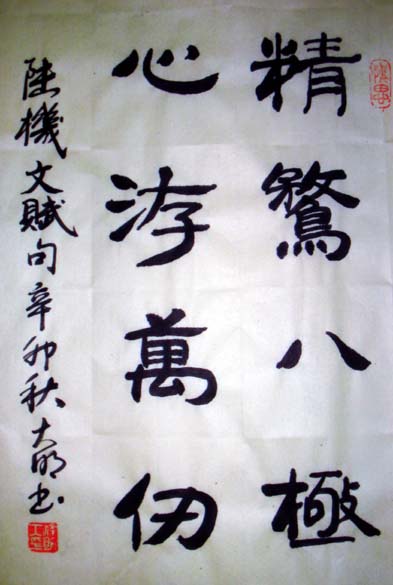 精鶩八極
心游萬仞
陸機文賦句辛卯秋大明书